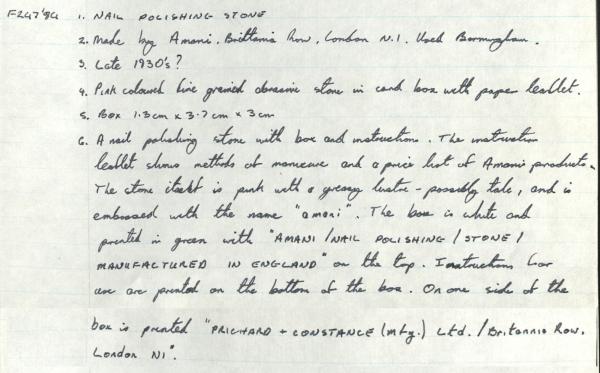 F247'84 1. NAIL POLISHING STONE
2. Made by Amani, Brittania Row, London N.1. Used Birmingham.
3. Late 1930's?
4. Pink coloured fine grained abrasive stone in card box with paper leaflet.
5. Box 1.3cm x 3.7cm x 3cm
6. A nail polishing stone with box and instructions. The instruction
leaflet shows methods of manicure and a price list of Amani products.
The stone itself is pink with a greasy lustre - possibly talc, and is
embossed with the name "amani". The box is white and
printed in green with "AMANI / NAIL POLISHING / STONE /
MANUFACTURED IN ENGLAND" on the top. Instructions for
use are printed on the bottom of the box. On one side of the
box is printed "PRICHARD + CONSTANCE (mfg.) Ltd. / Britannia Row,
London N1".